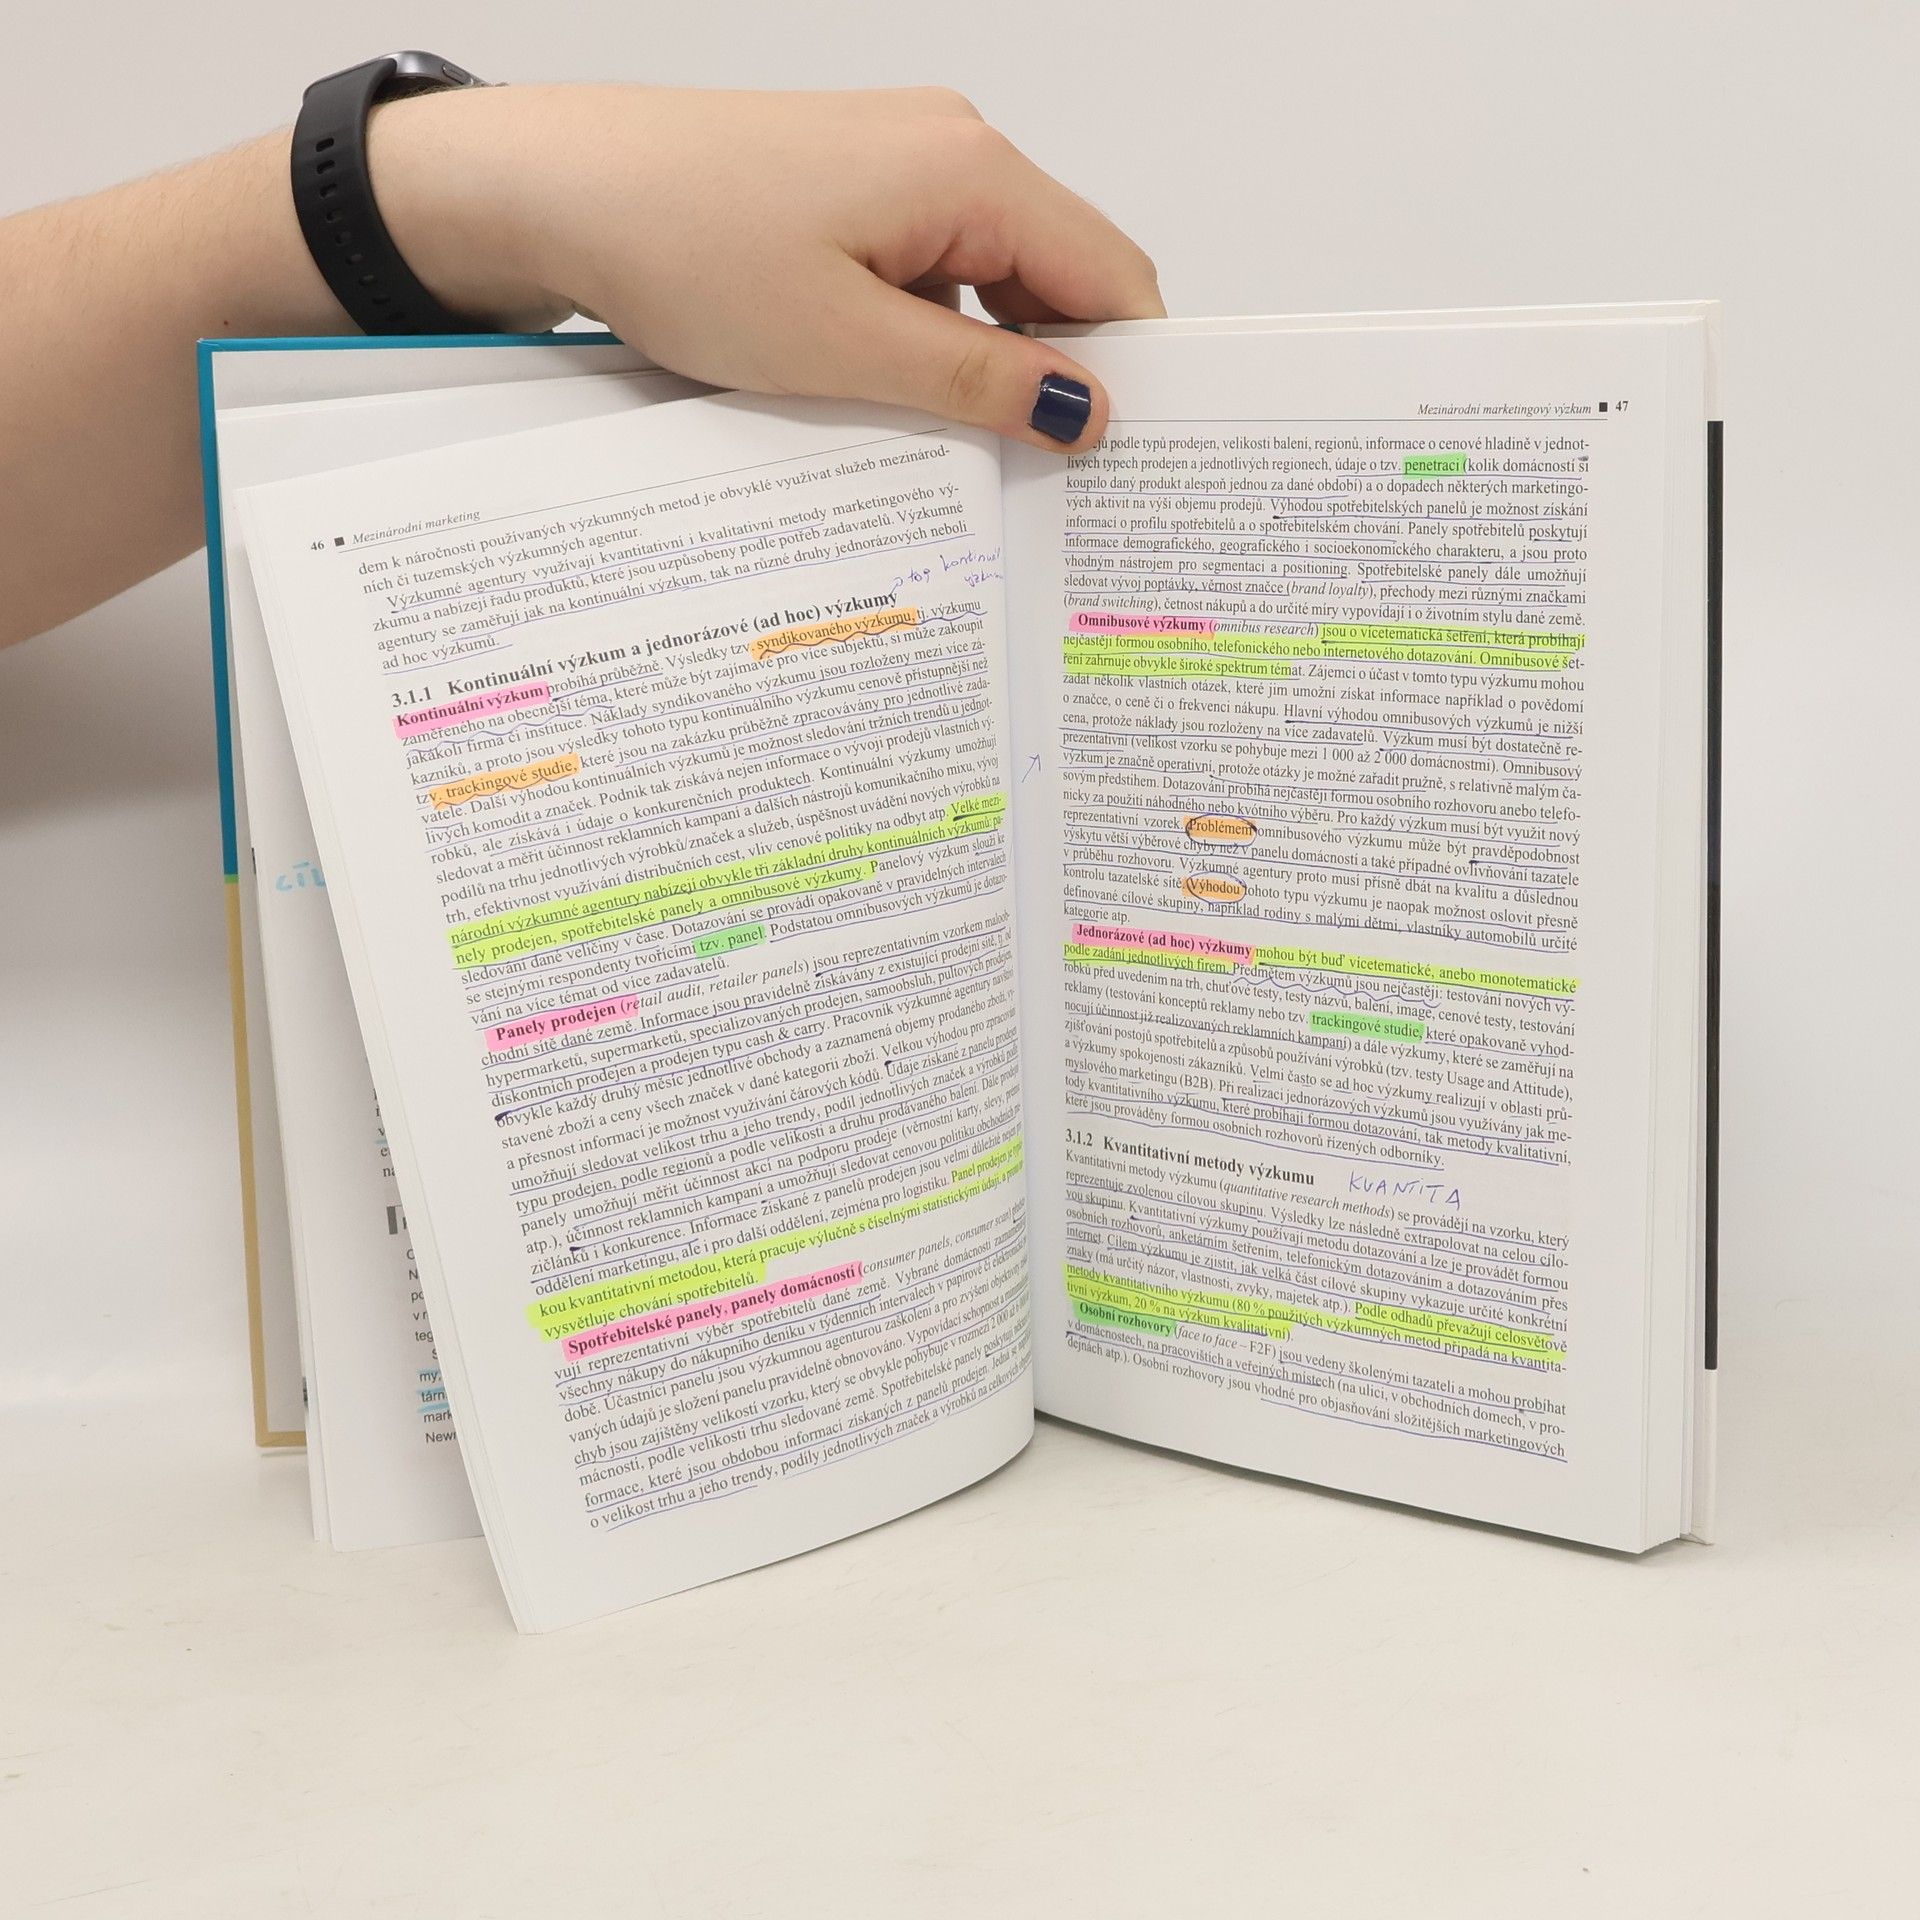 46 ■ Mezinárodní marketing
dem k náročnosti používaných výzkumných metod je obvyklé využívat služeb mezinárod-
ních či tuzemských výzkumných agentur.
Výzkumné agentury využívají kvantitativní i kvalitativní metody marketingového vý-
zkumu a nabízejí řadu produktů, které jsou uzpůsobeny podle potřeb zadavatelů. Výzkumné
agentury se zaměřují jak na kontinuální výzkum, tak na různé druhy jednorázových neboli
ad hoc výzkumů.
3.1.1 Kontinuální výzkum a jednorázové (ad hoc) výzkumy
Kontinuální výzkum probíhá průběžně. Výsledky tzv. syndikovaného výzkumu, tj. výzkumu
zaměřeného na obecnější téma, které může být zajímavé pro více subjektů, si může zakoupit
jakákoli firma či instituce. Náklady syndikovaného výzkumu jsou rozloženy mezi více zá-
kazníků, a proto jsou výsledky tohoto typu kontinuálního výzkumu cenově přístupnější než
tzv. trackingové studie, které jsou na zakázku průběžně zpracovávány pro jednotlivé zada-
vatele. Další výhodou kontinuálních výzkumů je možnost sledování tržních trendů u jednot-
livých komodit a značek. Podnik tak získává nejen informace o vývoji prodejů vlastních vý-
robků, ale získává i údaje o konkurenčních produktech. Kontinuální výzkumy umožňují
sledovat a měřit účinnost reklamních kampaní a dalších nástrojů komunikačního mixu, vývoj
podílů na trhu jednotlivých výrobků/značek a služeb, úspěšnost uvádění nových výrobků na
trh, efektivnost využívání distribučních cest, vliv cenové politiky na odbyt atp. Velké mezi-
národní výzkumné agentury nabízejí obvykle tři základní druhy kontinuálních výzkumů: pa-
nely prodejen, spotřebitelské panely a omnibusové výzkumy. Panelový výzkum slouží ke
sledování dané veličiny v čase. Dotazování se provádí opakovaně v pravidelných intervalech
se stejnými respondenty tvořícími tzv. panel. Podstatou omnibusových výzkumů je dotazo-
vání na více témat od více zadavatelů.
Panely prodejen (retail audit, retailer panels) jsou reprezentativním vzorkem maloob-
chodní sítě dané země. Informace jsou pravidelně získávány z existující prodejní sítě, tj. od
hypermarketů, supermarketů, specializovaných prodejen, samoobsluh, pultových prodejen,
diskontních prodejen a prodejen typu cash & carry. Pracovník výzkumné agentury navštíví
obvykle každý druhý měsíc jednotlivé obchody a zaznamená objemy prodaného zboží, vy-
stavené zboží a ceny všech značek v dané kategorii zboží. Velkou výhodou pro zpracování
a přesnost informací je možnost využívání čárových kódů. Údaje získané z panelu prodejen
umožňují sledovat velikost trhu a jeho trendy, podíl jednotlivých značek a výrobků podle
typu prodejen, podle regionů a podle velikosti a druhu prodávaného balení. Dále prodejní
panely umožňují měřit účinnost akcí na podporu prodeje (věrnostní karty, slevy, prémie
atp.), účinnost reklamních kampaní a umožňují sledovat cenovou politiku obchodních
zičlánků i konkurence. Informace získané z panelů prodejen jsou velmi důležité nejen pro
oddělení marketingu, ale i pro další oddělení, zejména pro logistiku. Panel prodejen je
kou kvantitativní metodou, která pracuje výlučně s číselnými statistickými údaji, a proto
vysvětluje chování spotřebitelů.
Spotřebitelské panely, panely domácností (consumer panels, consumer scan)
vují reprezentativní výběr spotřebitelů dané země. Vybrané domácnosti zaznamenávají
všechny nákupy do nákupního deníku v týdenních intervalech v papírové či elektronické
době. Účastníci panelu jsou výzkumnou agenturou zaškoleni a pro zvýšení objektivity
vaných údajů je složení panelu pravidelně obnovováno. Vypovídací schopnost a
chyb jsou zajištěny velikostí vzorku, který se obvykle pohybuje v rozmezí 2 000 až
mácností, podle velikosti trhu sledované země. Spotřebitelské panely poskytují
formace, které jsou obdobou informací získaných z panelů prodejen. Jedná se
o velikost trhu a jeho trendy, podíly jednotlivých značek a výrobků na celkových
Mezinárodní marketingový výzkum ■ 47
podle typů prodejen, velikosti balení, regionů, informace o cenové hladině v jednot-
livých typech prodejen a jednotlivých regionech, údaje o tzv. penetraci (kolik domácností si
koupilo daný produkt alespoň jednou za dané období) a o dopadech některých marketingo-
vých aktivit na výši objemu prodejů. Výhodou spotřebitelských panelů je možnost získání
informací o profilu spotřebitelů a o spotřebitelském chování. Panely spotřebitelů poskytují
informace demografického, geografického i socioekonomického charakteru, a jsou proto
vhodným nástrojem pro segmentaci a positioning. Spotřebitelské panely dále umožňují
sledovat vývoj poptávky, věrnost značce (brand loyalty), přechody mezi různými značkami
(brand switching), četnost nákupů a do určité míry vypovídají i o životním stylu dané země.
Omnibusové výzkumy (omnibus research) jsou o vícetematická šetření, která probíhají
nejčastěji formou osobního, telefonického nebo internetového dotazování. Omnibusové šet-
ření zahrnuje obvykle široké spektrum témat. Zájemci o účast v tomto typu výzkumu mohou
zadat několik vlastních otázek, které jim umožní získat informace například o povědomí
o značce, o ceně či o frekvenci nákupu. Hlavní výhodou omnibusových výzkumů je nižší
cena, protože náklady jsou rozloženy na více zadavatelů. Výzkum musí být dostatečně re-
prezentativní (velikost vzorku se pohybuje mezi 1 000 až 2 000 domácnostmi). Omnibusový
výzkum je značně operativní, protože otázky je možné zařadit pružně, s relativně malým ča-
sovým předstihem. Dotazování probíhá nejčastěji formou osobního rozhovoru anebo telefo-
nicky za použití náhodného nebo kvótního výběru. Pro každý výzkum musí být využit nový
reprezentativní vzorek. Problémem omnibusového výzkumu může být pravděpodobnost
výskytu větší výběrové chyby než v panelu domácností a také případné ovlivňování tazatele
v průběhu rozhovoru. Výzkumné agentury proto musí přísně dbát na kvalitu a důslednou
kontrolu tazatelské sítě. Výhodou tohoto typu výzkumu je naopak možnost oslovit přesně
definované cílové skupiny, například rodiny s malými dětmi, vlastníky automobilů určité
kategorie atp.
Jednorázové (ad hoc) výzkumy mohou být buď vícetematické, anebo monotematické
podle zadání jednotlivých firem. Předmětem výzkumů jsou nejčastěji: testování nových vý-
robků před uvedením na trh, chuťové testy, testy názvů, balení, image, cenové testy, testování
reklamy (testování konceptů reklamy nebo tzv. trackingové studie, které opakovaně vyhod-
nocují účinnost již realizovaných reklamních kampaní) a dále výzkumy, které se zaměřují na
zjišťování postojů spotřebitelů a způsobů používání výrobků (tzv. testy Usage and Attitude),
a výzkumy spokojenosti zákazníků. Velmi často se ad hoc výzkumy realizují v oblasti prů-
myslového marketingu (B2B). Při realizaci jednorázových výzkumů jsou využívány jak me-
tody kvantitativního výzkumu, které probíhají formou dotazování, tak metody kvalitativní,
které jsou prováděny formou osobních rozhovorů řízených odborníky.
3.1.2 Kvantitativní metody výzkumu KVANTITA
Kvantitativní metody výzkumu (quantitative research methods) se provádějí na vzorku, který
reprezentuje zvolenou cílovou skupinu. Výsledky lze následně extrapolovat na celou cílo-
vou skupinu. Kvantitativní výzkumy používají metodu dotazování a lze je provádět formou
osobních rozhovorů, anketárním šetřením, telefonickým dotazováním a dotazováním přes
internet. Cílem výzkumu je zjistit, jak velká část cílové skupiny vykazuje určité konkrétní
znaky (má určitý názor, vlastnosti, zvyky, majetek atp.). Podle odhadů převažují celosvětově
metody kvantitativního výzkumu (80 % použitých výzkumných metod připadá na kvantita-
tivní výzkum, 20 % na výzkum kvalitativní).
Osobní rozhovory (face to face – F2F) jsou vedeny školenými tazateli a mohou probíhat
v domácnostech, na pracovištích a veřejných místech (na ulici, v obchodních domech, v pro-
dejnách atp.). Osobní rozhovory jsou vhodné pro objasňování složitějších marketingových